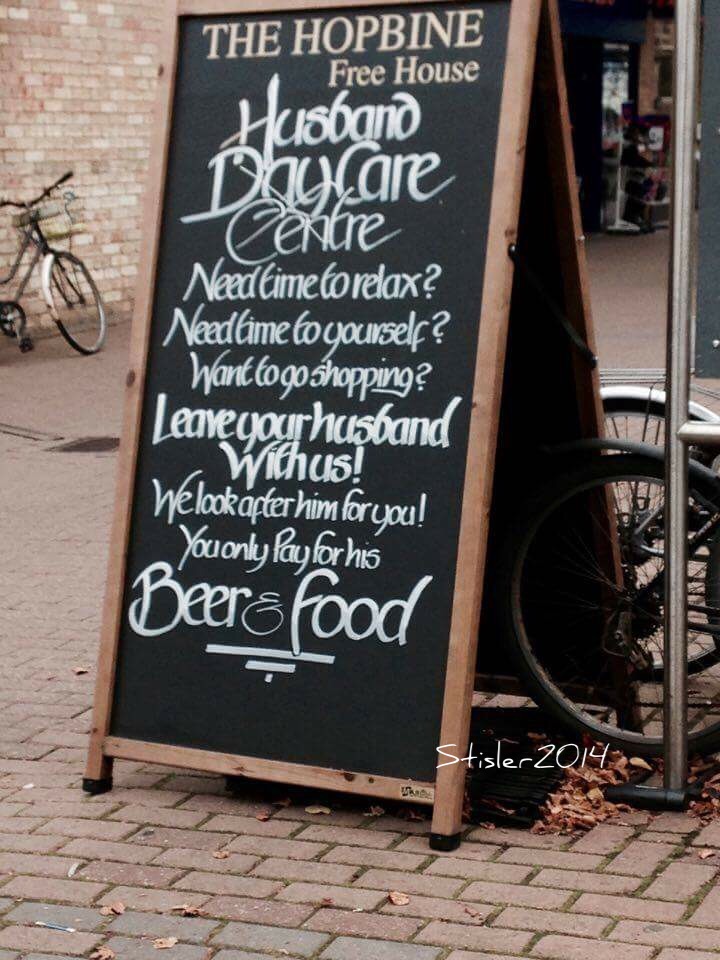 THE HOPBINE
Free House
Husband
DayCare
Centre
Need time to relax?
Need time to yourself?
Want to go shopping?
Leave your husband
With us!
We look after him for you!
You only Pay for his
Beer & food
Stisler2014